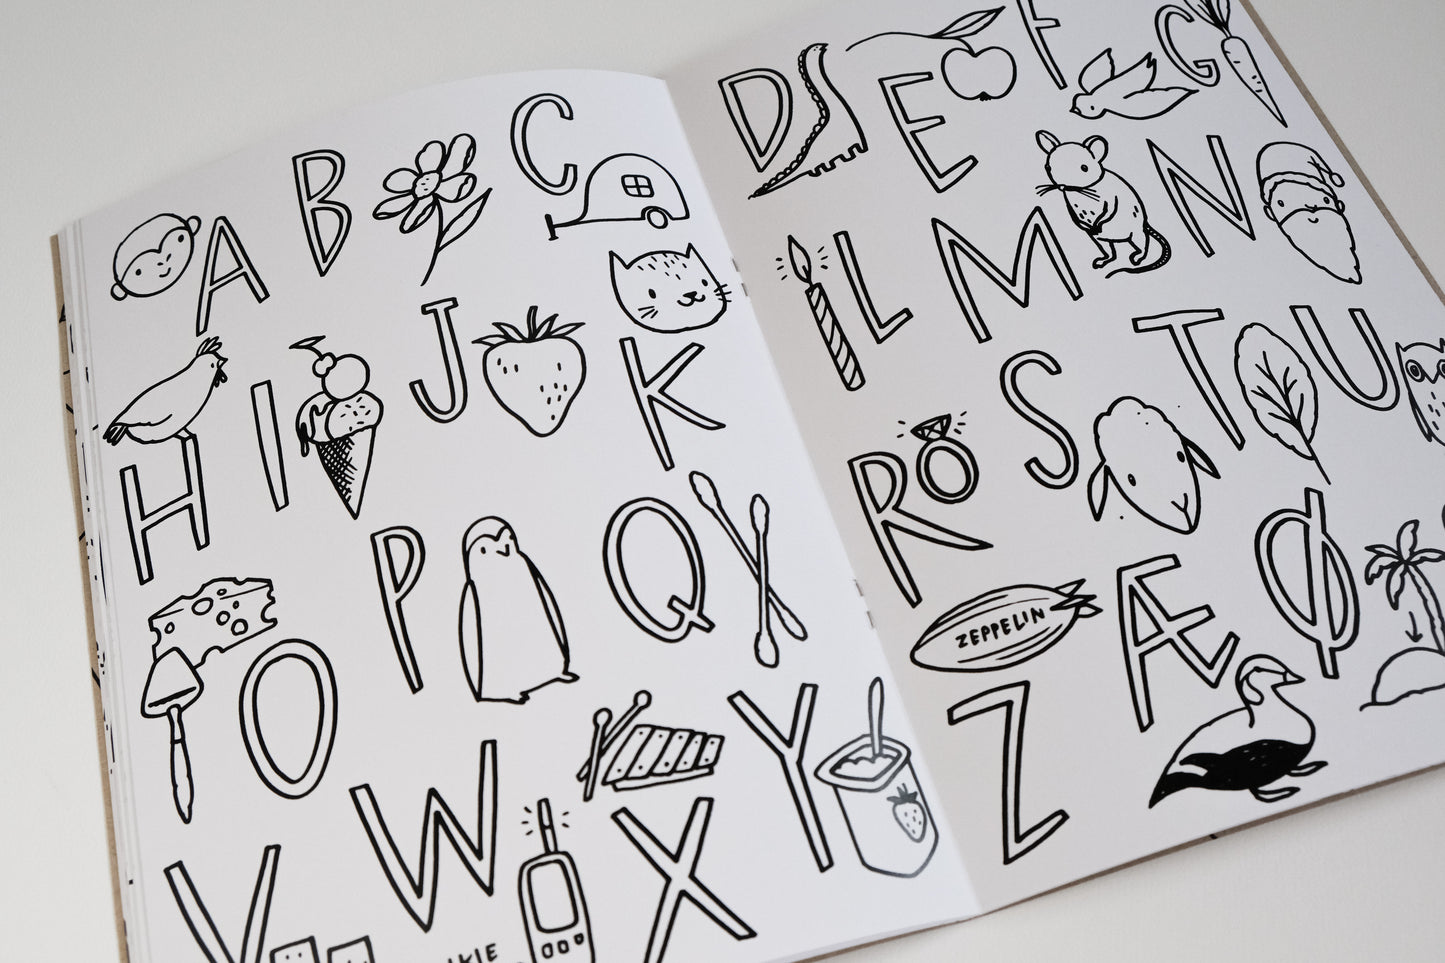 A B C
H I J K
O P Q
V W X Y
KIE
D E F G
L M N
R S T U
ZEPPELIN
Z Æ Ø